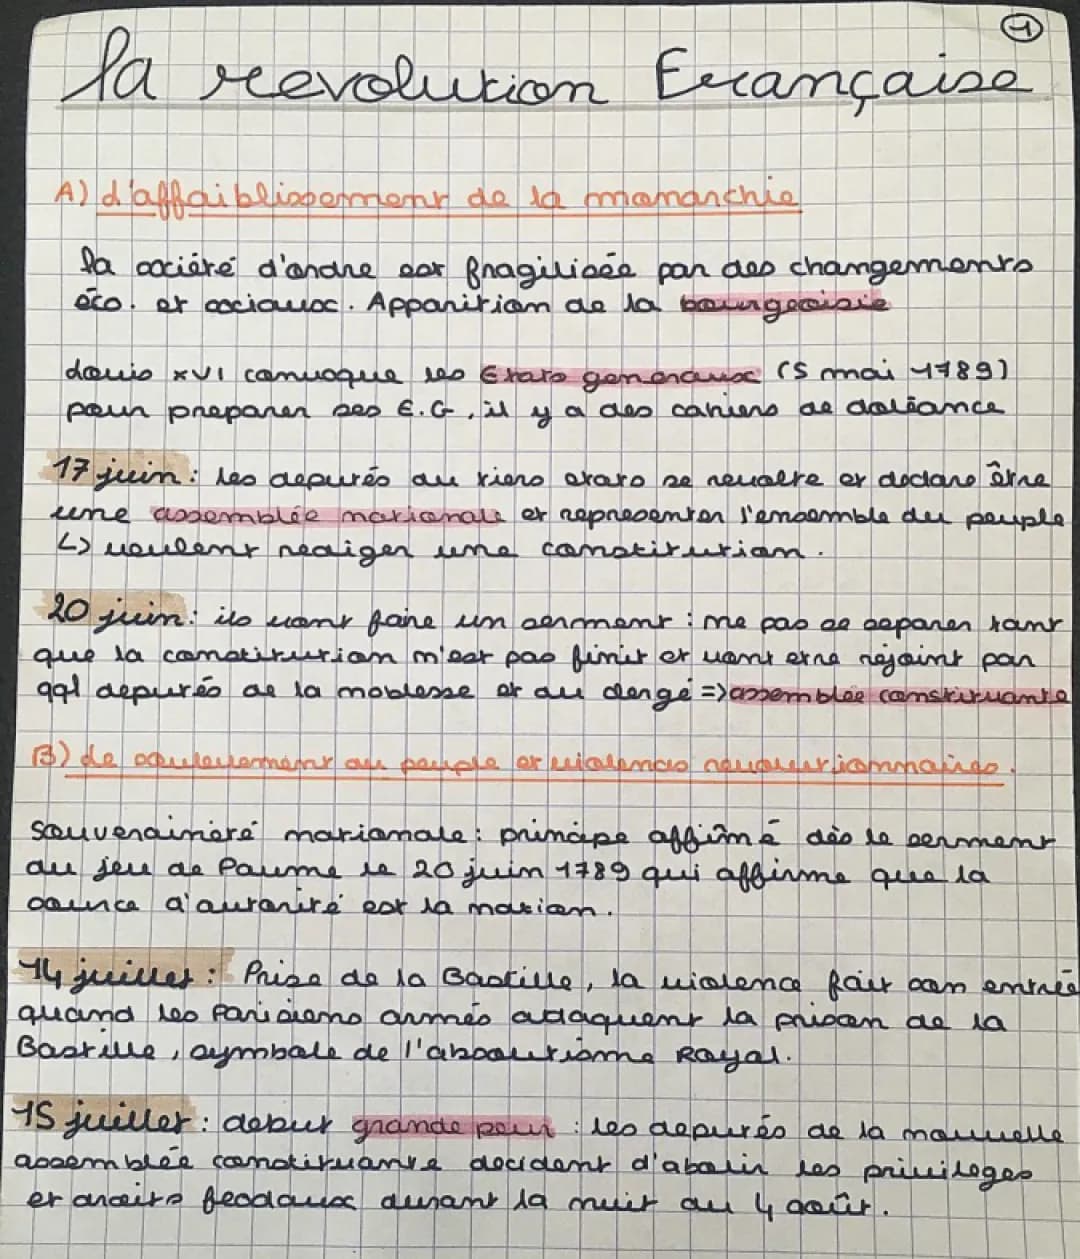 1
La revolution Française
A) L'affaiblissement de la monarchie
La société d'ordre est fragilisée par des changements
éco. et sociaux. Apparition de la bourgeoisie
Louis XVI convoque les Etats generaux (5 mai 1789)
pour preparer ses E.G, il y a des cahiers de doléance
17 juin : les deputés du tiers etats se revolte et declare être
une assemblée nationale et representer l'ensemble du peuple
↳ veulent rediger une constitution.
20 juin : ils vont faire un serment : ne pas se separer tant
que la constitution n'est pas finit et vont etre rejoint par
qql deputés de la noblesse et du clergé => assemblée constituante
B) Le soulevement du peuple et violences revolutionnaires.
Souveraineté nationale : principe affirmé dès le serment
du jeu de Paume le 20 juin 1789 qui affirme que la
source d'autorité est la nation.
14 juillet : Prise de la Bastille, la violence fait son entrée
quand les Parisiens armés attaquent la prison de la
Bastille, symbole de l'absolutisme Royal.
15 juillet : debut grande peur : les deputés de la nouvelle
assemblée constituante decident d'abolir les privileges
et droits feodaux durant la nuit du 4 août.